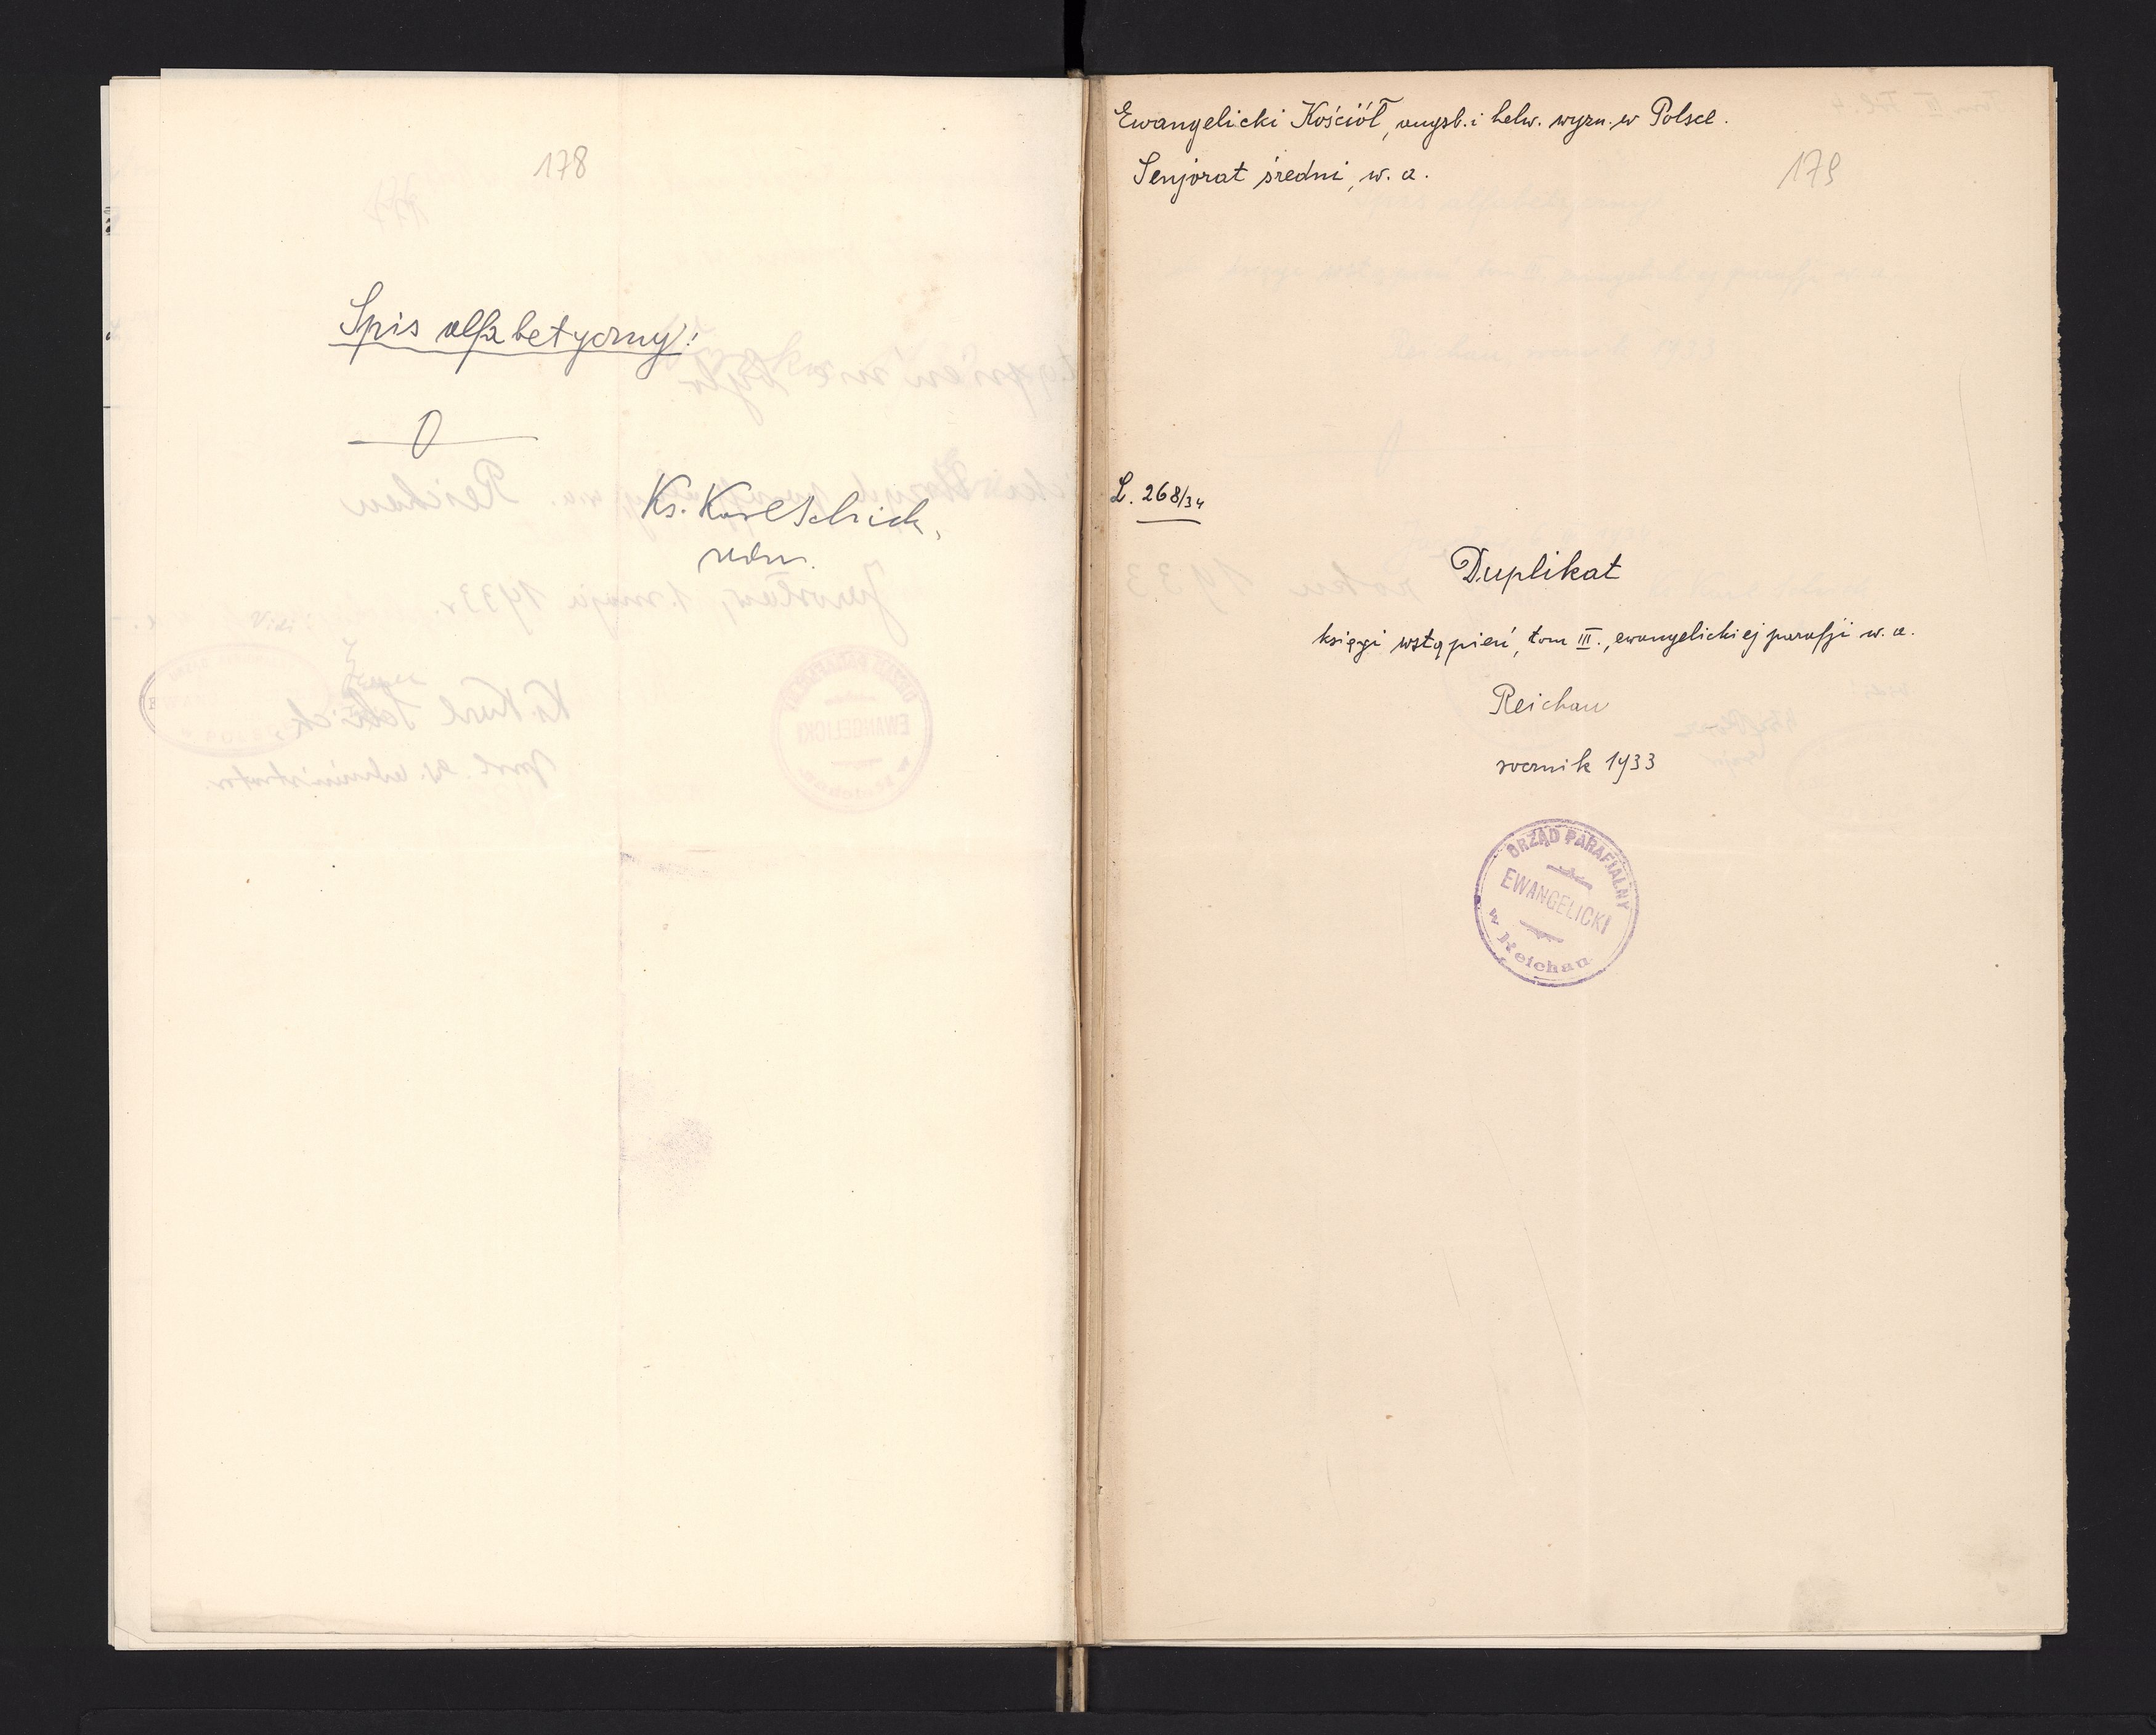 178
Spis alfabetyczny:
0
Ks. Karl Schick,
adm.
Ewangelicki Kościół, augsb. i helw. wyzn. w Polsce.
Senjorat średni, w. a.
179
L. 268/34
Duplikat
księgi wstąpień, tom III., ewangelickiej parafji w. a.
Reichau
rocznik 1933
URZĄD PARAFIALNY
EWANGELICKI
w Reichau